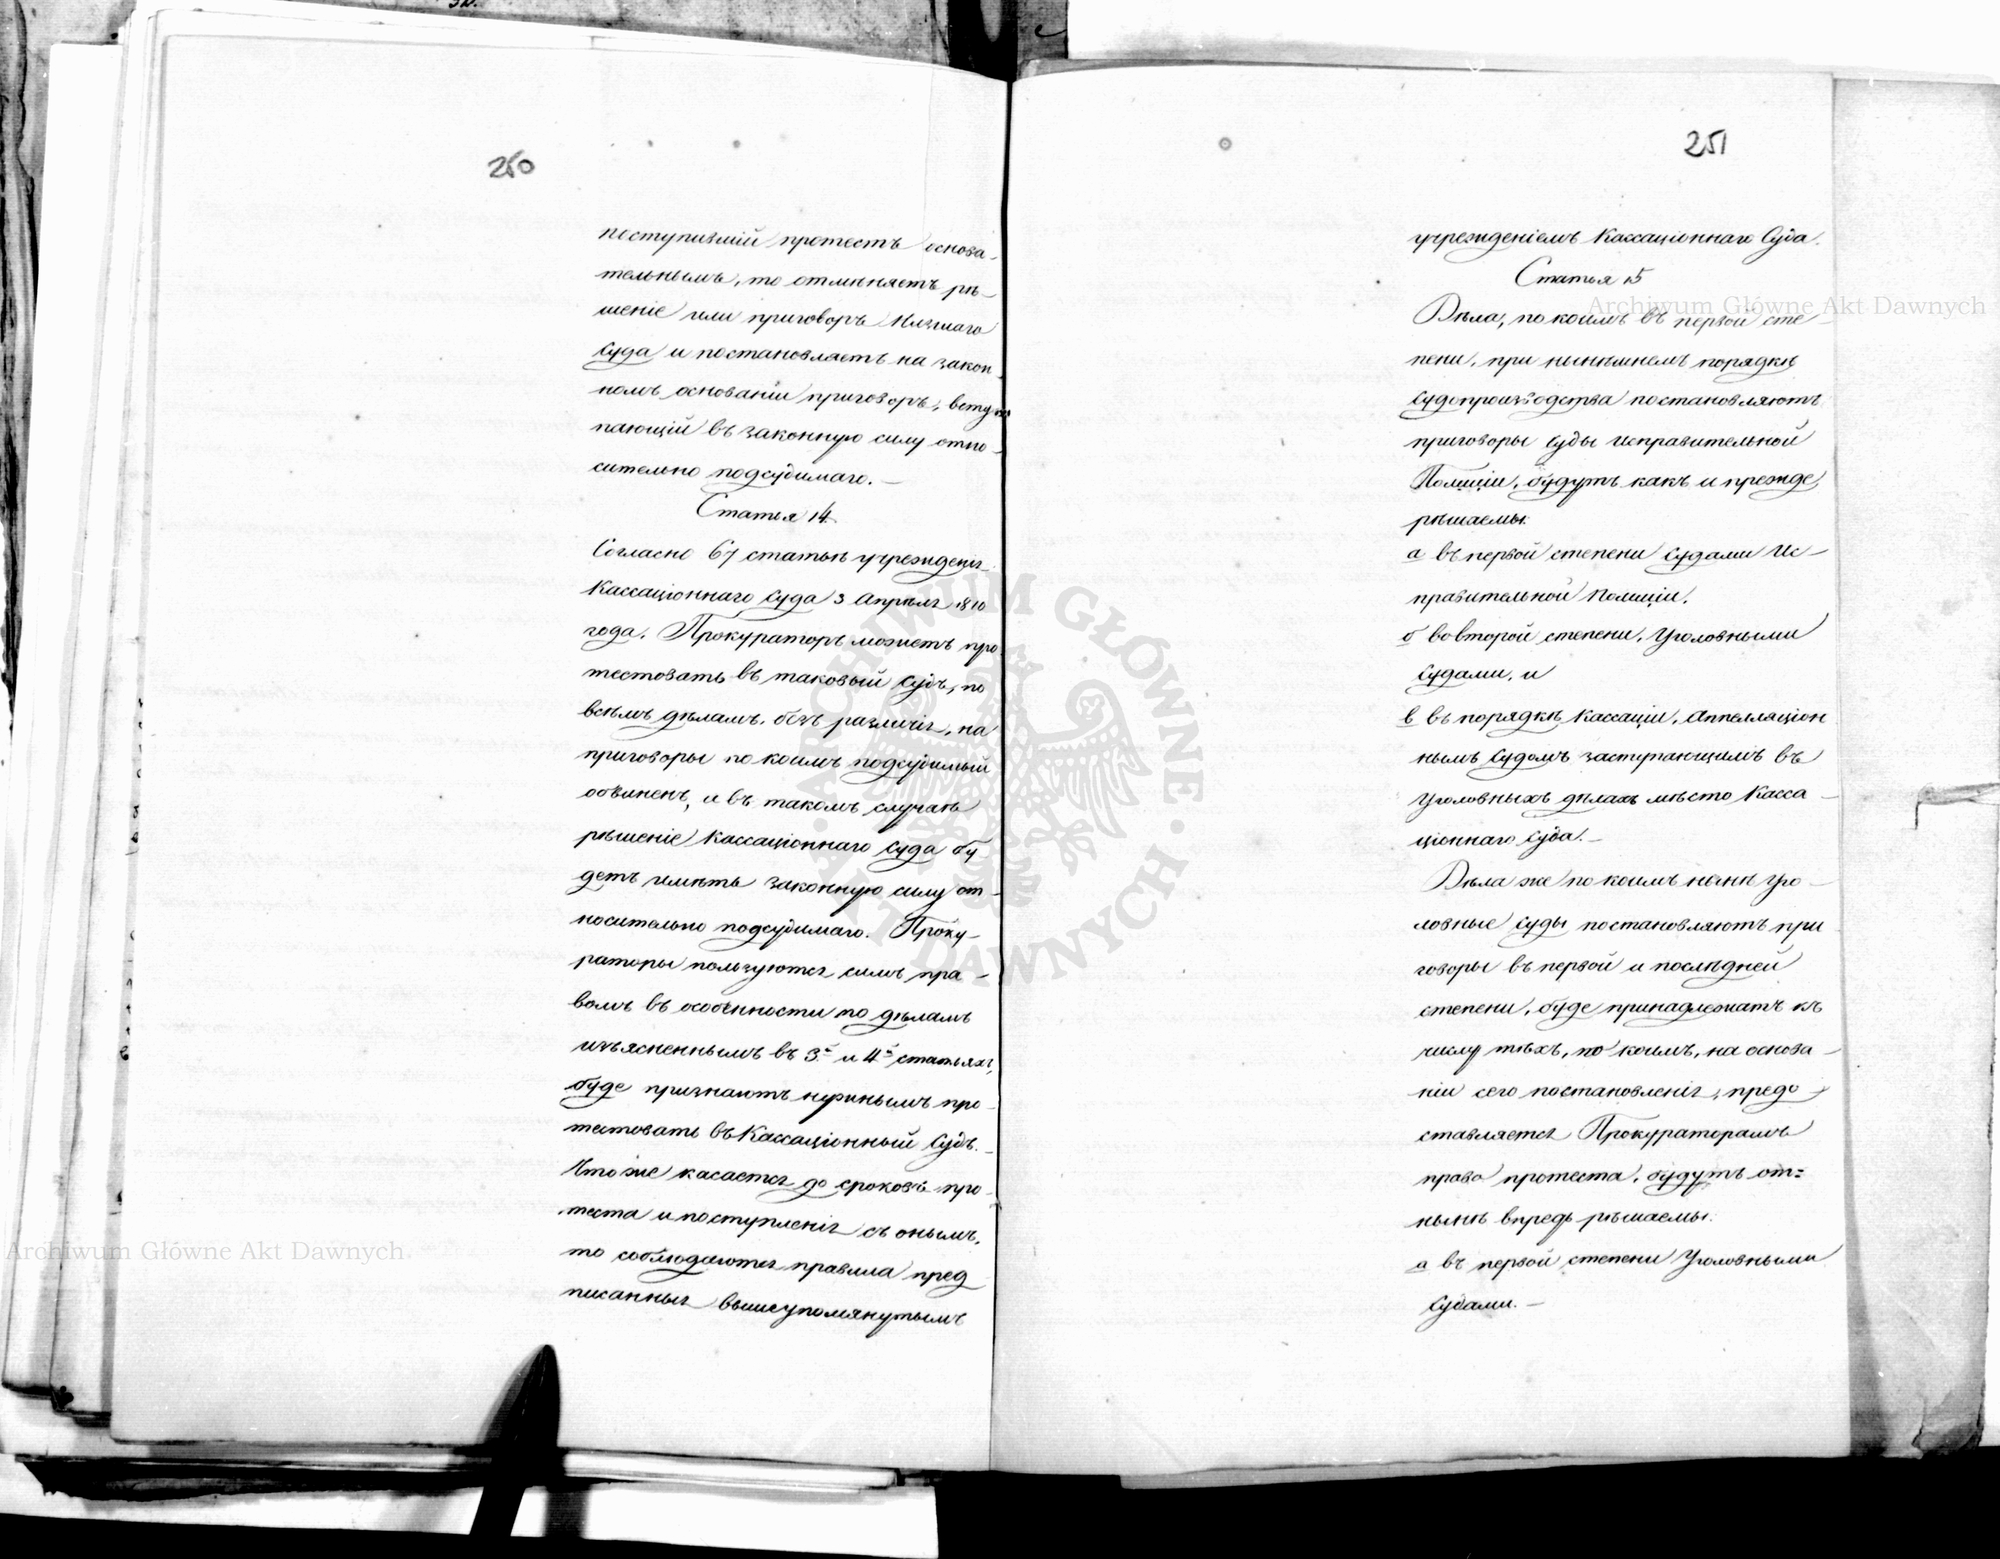 250
поступившій протестъ основа-
тельнымъ, то отмѣняетъ рѣ-
шеніе или приговоръ Низшаго
Суда и постановляетъ на закон-
номъ основаніи приговоръ, всту-
пающій въ законную силу отно-
сительно подсудимаго. —
Статья 14.
Согласно 67 статьи учрежденія
Кассаціоннаго Суда 3 Апрѣля 1810
года. Прокураторъ можетъ про
тестовать въ таковый Судъ, по
всѣмъ дѣламъ, безъ различія, на
приговоры по коимъ подсудимый
обвиненъ, и въ такомъ случаѣ
рѣшеніе Кассаціоннаго Суда бу-
детъ имѣть законную силу от-
носительно подсудимаго. Проку-
раторы пользуются симъ пра-
вомъ въ особенности по дѣламъ
изъясненнымъ въ 3й и 4й статьяхъ,
буде признаютъ нужнымъ про-
тестовать въ Кассаціонный Судъ. -
Что же касается до сроковъ про-
теста и поступленія съ онымъ,
то соблюдаются правила пред
писанныя вышеупомянутымъ
251
учрежденіемъ Кассаціоннаго Суда.
Статья 15
Дѣла, по коимъ въ первой сте-
пени, при нынѣшнемъ порядкѣ
судопроизводства постановляютъ
приговоры Суды Исправительной
Полиціи, будутъ какъ и прежде
рѣшаемы:
а въ первой степени Судами Ис-
правительной Полиціи.
б во второй степени, Уголовными
Судами, и
в въ порядкѣ Кассаціи, Аппелляціон
нымъ Судомъ заступающимъ въ
Уголовныхъ дѣлахъ мѣсто Касса-
ціоннаго Суда. -
Дѣла же по коимъ нынѣ Уго-
ловные Суды постановляютъ при
говоры въ первой и послѣдней
степени, буде принадлежатъ къ
числу тѣхъ, по коимъ, на основа-
ніи сего постановленія, предо
ставляется Прокураторамъ
право протеста, будутъ от=
нынѣ впредь рѣшаемы:
а въ первой степени Уголовными
Судами. —
Archiwum Główne Akt Dawnych
Archiwum Główne Akt Dawnych
ARCHIWUM GŁÓWNE · AKT DAWNYCH ·